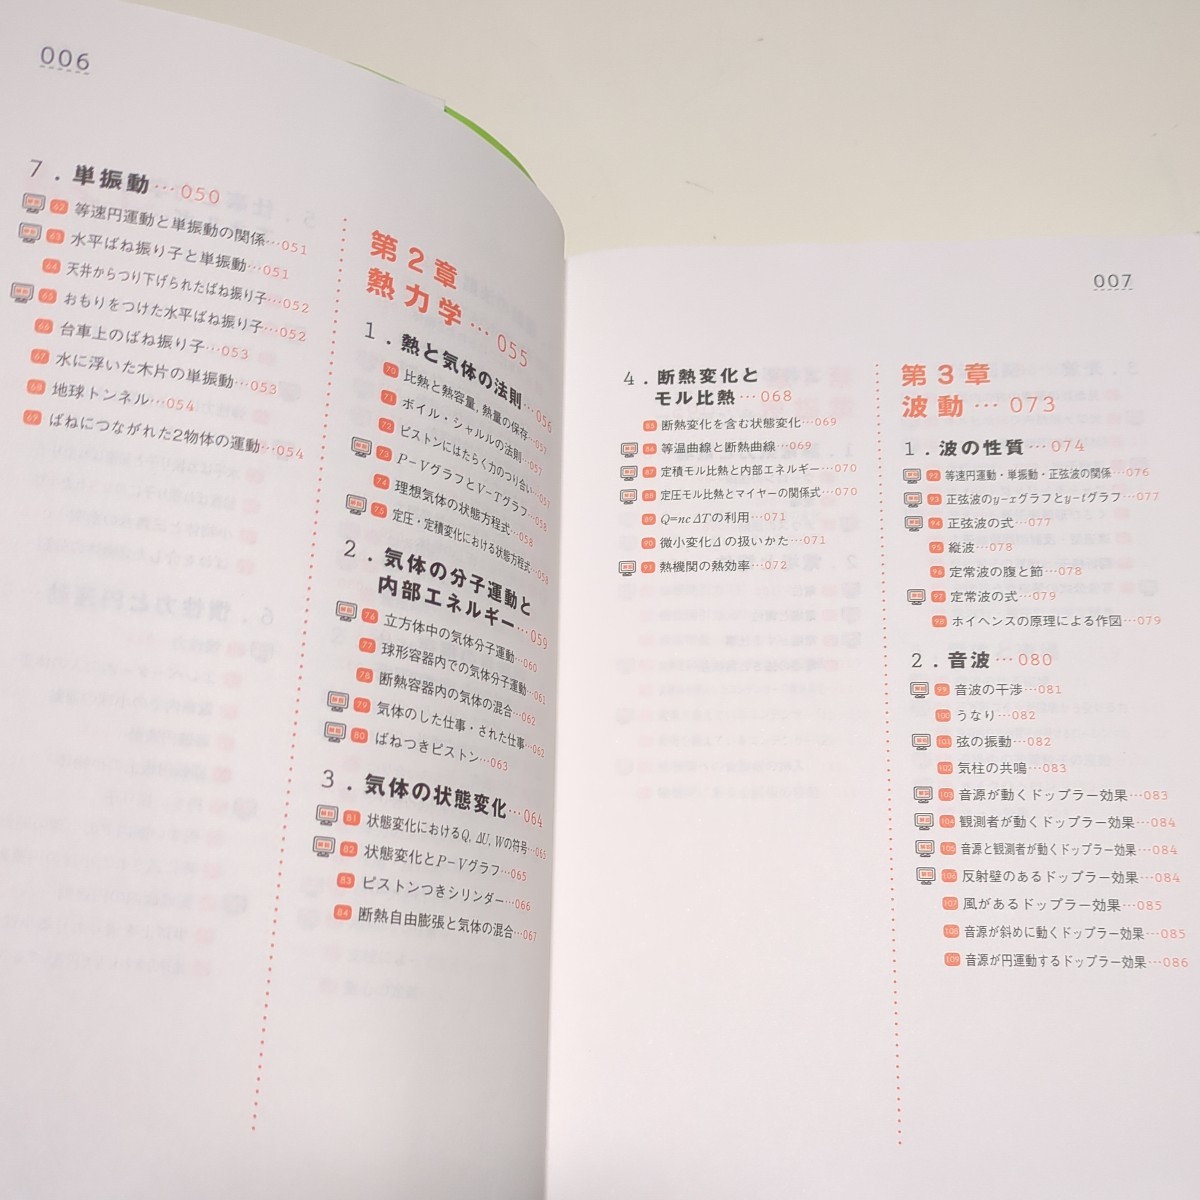 006
7.単振動…050
62 等速円運動と単振動の関係…051
63 水平ばね振り子と単振動…051
64 天井からつり下げられたばね振り子…052
65 おもりをつけた水平ばね振り子…052
66 台車上のばね振り子…053
67 水に浮いた木片の単振動…053
68 地球トンネル…054
69 ばねにつながれた2物体の運動…054
第2章
熱力学…055
1.熱と気体の法則…056
70 比熱と熱容量,熱量の保存…057
71 ボイル・シャルルの法則…057
72 ピストンにはたらく力のつり合い…057
73 P-VグラフとV-Tグラフ…058
74 理想気体の状態方程式…058
75 定圧・定積変化における状態方程式…058
2.気体の分子運動と
内部エネルギー…059
76 立方体中の気体分子運動…060
77 球形容器内での気体分子運動…061
78 断熱容器内の気体の混合…062
79 気体のした仕事・された仕事…062
80 ばねつきピストン…063
3.気体の状態変化…064
81 状態変化におけるQ, ΔU, Wの符号…065
82 状態変化とP-Vグラフ…065
83 ピストンつきシリンダー…066
84 断熱自由膨張と気体の混合…067
007
4.断熱変化と
モル比熱…068
85 断熱変化を含む状態変化…069
86 等温曲線と断熱曲線…069
87 定積モル比熱と内部エネルギー…070
88 定圧モル比熱とマイヤーの関係式…070
89 Q=ncΔTの利用…071
90 微小変化Δの扱いかた…071
91 熱機関の熱効率…072
第3章
波動…073
1.波の性質…074
92 等速円運動・単振動・正弦波の関係…076
93 正弦波のy-xグラフとy-tグラフ…077
94 正弦波の式…077
95 縦波…078
96 定常波の腹と節…078
97 定常波の式…079
98 ホイヘンスの原理による作図…079
2.音波…080
99 音波の干渉…081
100 うなり…082
101 弦の振動…082
102 気柱の共鳴…083
103 音源が動くドップラー効果…083
104 観測者が動くドップラー効果…084
105 音源と観測者が動くドップラー効果…084
106 反射壁のあるドップラー効果…084
107 風があるドップラー効果…085
108 音源が斜めに動くドップラー効果…085
109 音源が円運動するドップラー効果…086